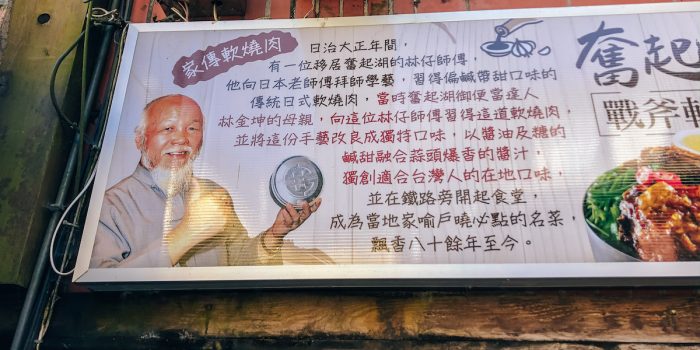 家傳軟燒肉
日治大正年間，
有一位移居奮起湖的林仔師傅，
他向日本老師傅拜師學藝，習得偏鹹帶甜口味的
傳統日式軟燒肉，當時奮起湖御便當達人
林金坤的母親，向這位林仔師傅習得這道軟燒肉，
並將這份手藝改良成獨特口味，以醬油及糖的
鹹甜融合蒜頭爆香的醬汁，
獨創適合台灣人的在地口味，
並在鐵路旁開起食堂，
成為當地家喻戶曉必點的名菜，
飄香八十餘年至今。
奮起
戰斧